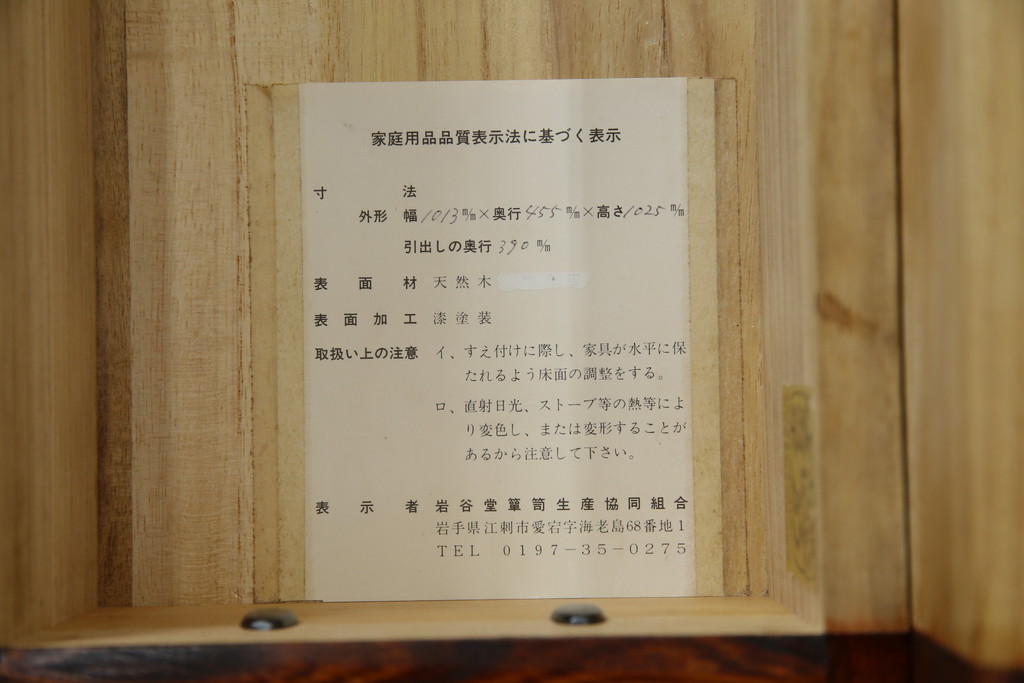 家庭用品品質表示法に基づく表示
寸法
外形 幅1013㎜×奥行455㎜×高さ1025㎜
引出しの奥行390㎜
表面材 天然木
表面加工 漆塗装
取扱い上の注意 イ、すえ付けに際し、家具が水平に保
たれるよう床面の調整をする。
ロ、直射日光、ストーブ等の熱等によ
り変色し、または変形することが
あるから注意して下さい。
表示者 岩谷堂簞笥生産協同組合
岩手県江刺市愛宕字海老島68番地1
TEL 0197-35-0275